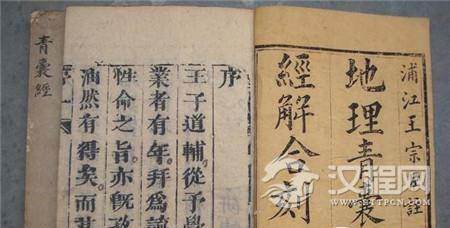 浦江王宗臣註
地理青囊
經解合刻
序
王子道輔從予學
業者有年。拜爲
性命之旨。亦既
然有得矣。而其
青囊經
汉程网
WWW.HTTPCN.COM